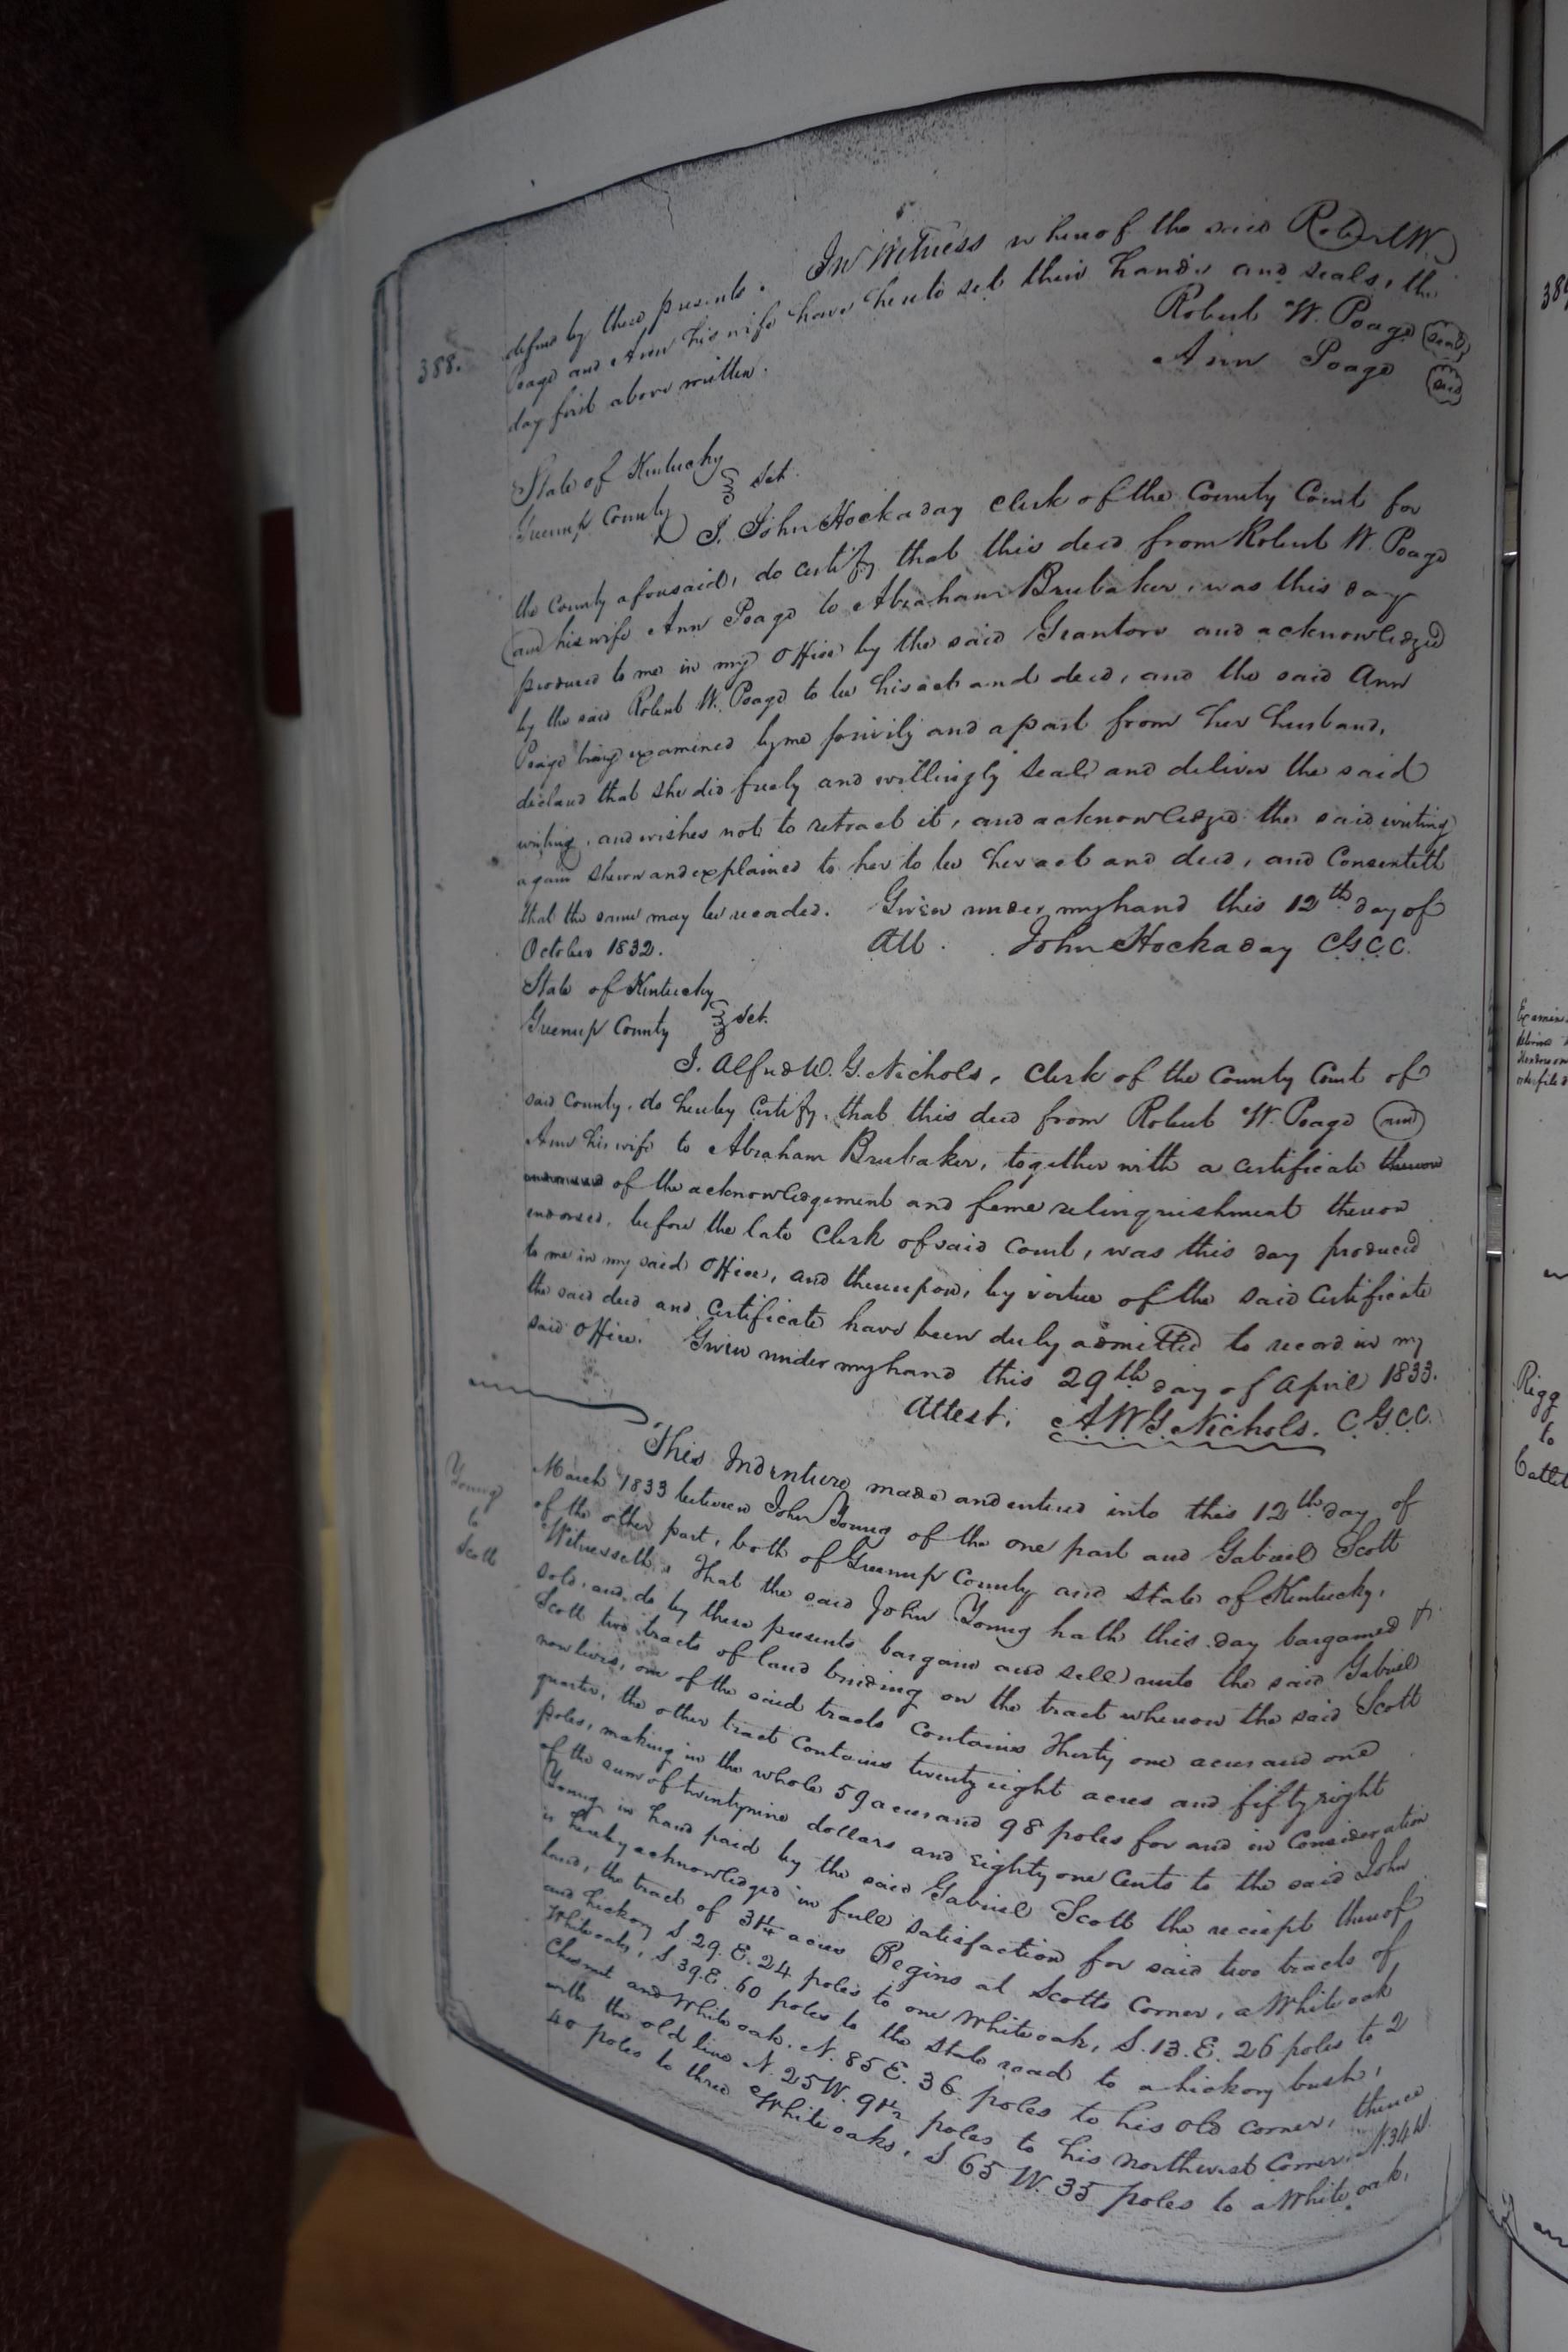 388.
defend by these presents. In Witness whereof the said Robert W.
Poage and Ann his wife have hereto set their hands and seals, the
day first above written.
Robert W. Poage (seal)
Ann Poage (seal)
State of Kentucky
Greenup County Sct.
I. John Hockaday Clerk of the County Court for
the County aforesaid, do certify that this deed from Robert W. Poage
and his wife Ann Poage to Abraham Brubaker, was this day
produced to me in my office by the said Grantors and acknowledged
by the said Robert W. Poage to be his act and deed, and the said Ann
Poage being examined by me privily and apart from her husband,
declared that she did freely and willingly seal and deliver the said
writing, and wishes not to retract it, and acknowledged the said writing
again shewn and explained to her to be her act and deed, and Consenteth
that the same may be recorded. Given under my hand this 12th day of
October 1832. Att. John Hockaday C.G.C.C.
State of Kentucky
Greenup County Sct.
I. Alfred W. G. Nichols, Clerk of the County Court of
said County, do hereby Certify, that this deed from Robert W. Poage and
Ann his wife to Abraham Brubaker, together with a certificate thereon
of the acknowledgement and feme relinquishment thereon
endorsed, before the late Clerk of said Court, was this day produced
to me in my said Office, and thereupon, by virtue of the said Certificate
the said deed and Certificate have been duly admitted to record in my
said Office. Given under my hand this 29th day of April 1833.
Attest, A.W.G. Nichols. C.G.C.C.
Young
to
Scott
This Indenture made and entered into this 12th day of
March 1833 between John Young of the one part and Gabriel Scott
of the other part, both of Greenup County and State of Kentucky,
Witnesseth, That the said John Young hath this day bargained &
sold, and do by these presents bargain and sell unto the said Gabriel
Scott two tracts of land binding on the tract whereon the said Scott
now lives, one of the said tracts Contains Thirty one acres and one
quarter, the other tract Contains twenty eight acres and fifty eight
poles, making in the whole 59 acres and 98 poles for and in Consideration
of the sum of twentynine dollars and eighty one Cents to the said John
Young in hand paid by the said Gabriel Scott the reciept thereof
is hereby acknowledged in full satisfaction for said two tracts of
land, the tract of 31¼ acres Begins at Scotts Corner, a White oak
and hickory S. 29. E. 24 poles to one White oak, S. 13. E. 26 poles to 2
White oaks, S. 39. E. 60 poles to the State road to a hickory bush,
Chesnut and White oak. N. 85 E. 36 poles to his old Corner, thence
with the old line N. 25 W. 91½ poles to his northwest Corner, N. 34 W.
40 poles to three White oaks, S 65 W. 35 poles to a White oak,
38
Examin
Rigg
to
Catlet